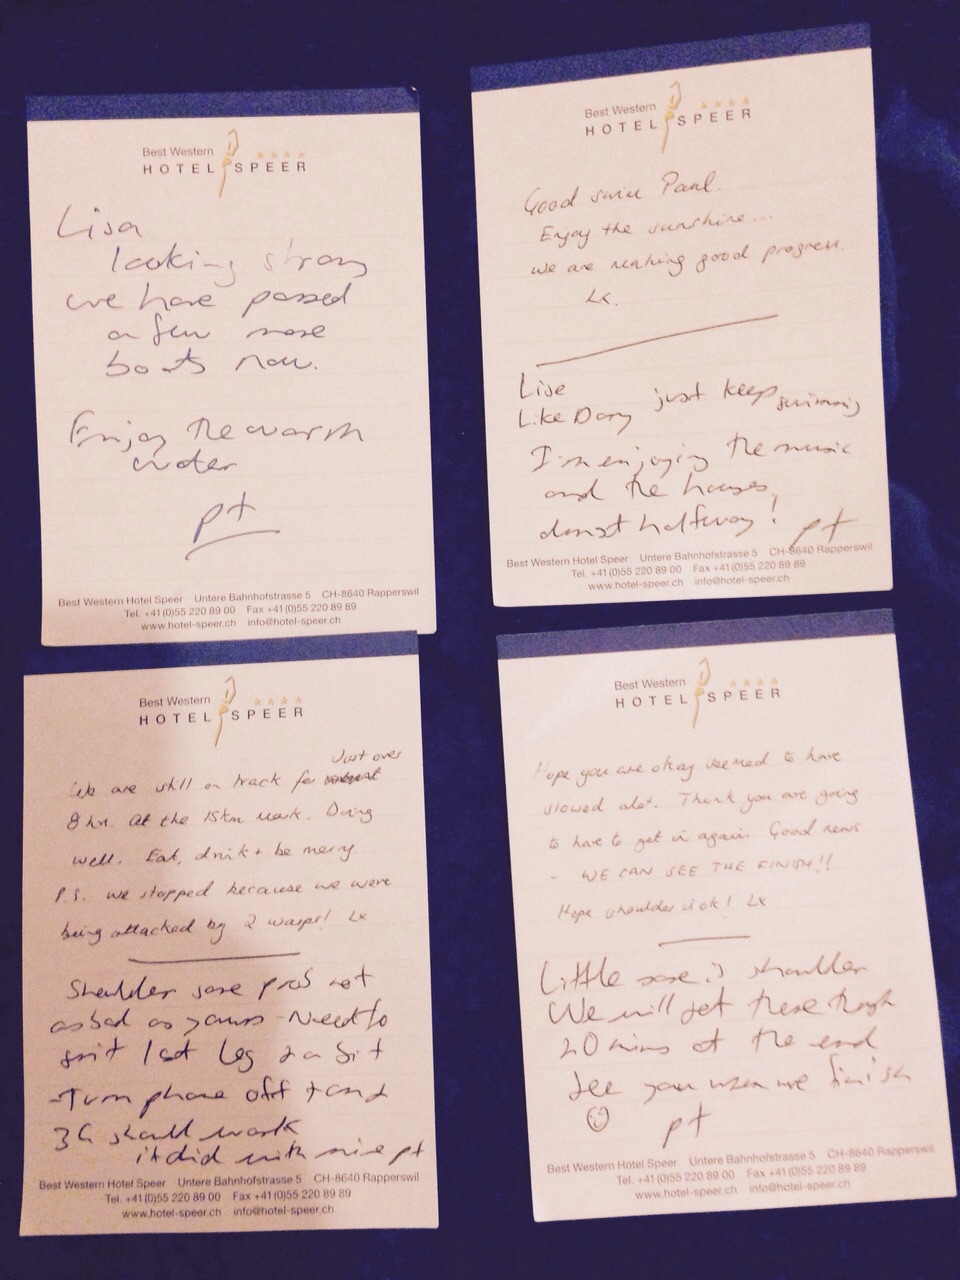 Best Western
HOTEL SPEER
Lisa
looking strong
we have passed
a few more
boats now.
Enjoy the warm
water
pt
Best Western Hotel Speer Untere Bahnhofstrasse 5 CH-8640 Rapperswil
Tel. +41 (0)55 220 89 00 Fax +41 (0)55 220 89 89
www.hotel-speer.ch info@hotel-speer.ch
Best Western
HOTEL SPEER
Good swim Paul.
Enjoy the sunshine...
we are making good progress.
Lx.
Lise
Like Dory just keep swimming
I'm enjoying the music
and the houses,
almost halfway!
pt
Best Western Hotel Speer Untere Bahnhofstrasse 5 CH-8640 Rapperswil
Tel. +41 (0)55 220 89 00 Fax +41 (0)55 220 89 89
www.hotel-speer.ch info@hotel-speer.ch
Best Western
HOTEL SPEER
Just over
We are still on track for
8 hrs. At the 15km mark. Doing
well. Eat, drink + be merry.
P.S. we stopped because we were
being attacked by 2 wasps! Lx
Shoulder sore prob not
as bad as yours - Need to
split last leg 2 a bit
- Turn phone off + and
3G should work
it did with mine pt
Best Western Hotel Speer Untere Bahnhofstrasse 5 CH-8640 Rapperswil
Tel. +41 (0)55 220 89 00 Fax +41 (0)55 220 89 89
www.hotel-speer.ch info@hotel-speer.ch
Best Western
HOTEL SPEER
Hope you are okay seemed to have
slowed alot. Think you are going
to have to get in again. Good news
- WE CAN SEE THE FINISH!!
Hope shoulder is ok! Lx
Little sore is shoulder
We will get there though
20 mins at the end
See you when we finish
☺ pt
Best Western Hotel Speer Untere Bahnhofstrasse 5 CH-8640 Rapperswil
Tel. +41 (0)55 220 89 00 Fax +41 (0)55 220 89 89
www.hotel-speer.ch info@hotel-speer.ch